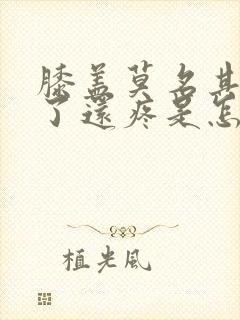 膝盖莫名其
了还疼是怎
植光风